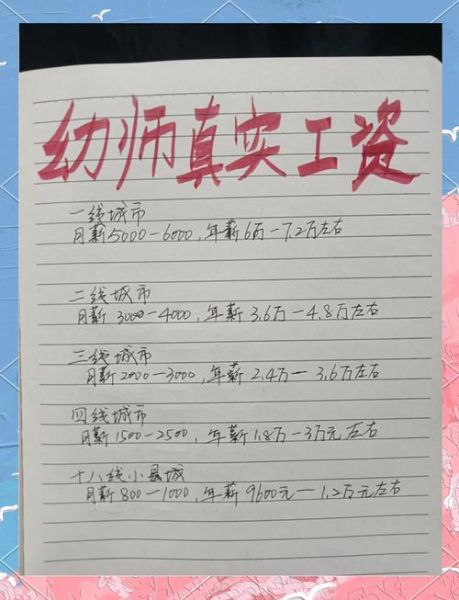 幼师真实工资
一线城市
月薪5000-6000,年薪6万-7.2万左右
二线城市
月薪 3000-4000,年薪3.6万-4.8万左右
三线城市
月薪2000-3000,年薪 2.4万-3.6万左右
四线城市
月薪1500-2500,年薪1.8万-3万元左右
十八线小县城
月薪800-1000,年薪9600元-1.2万元左右